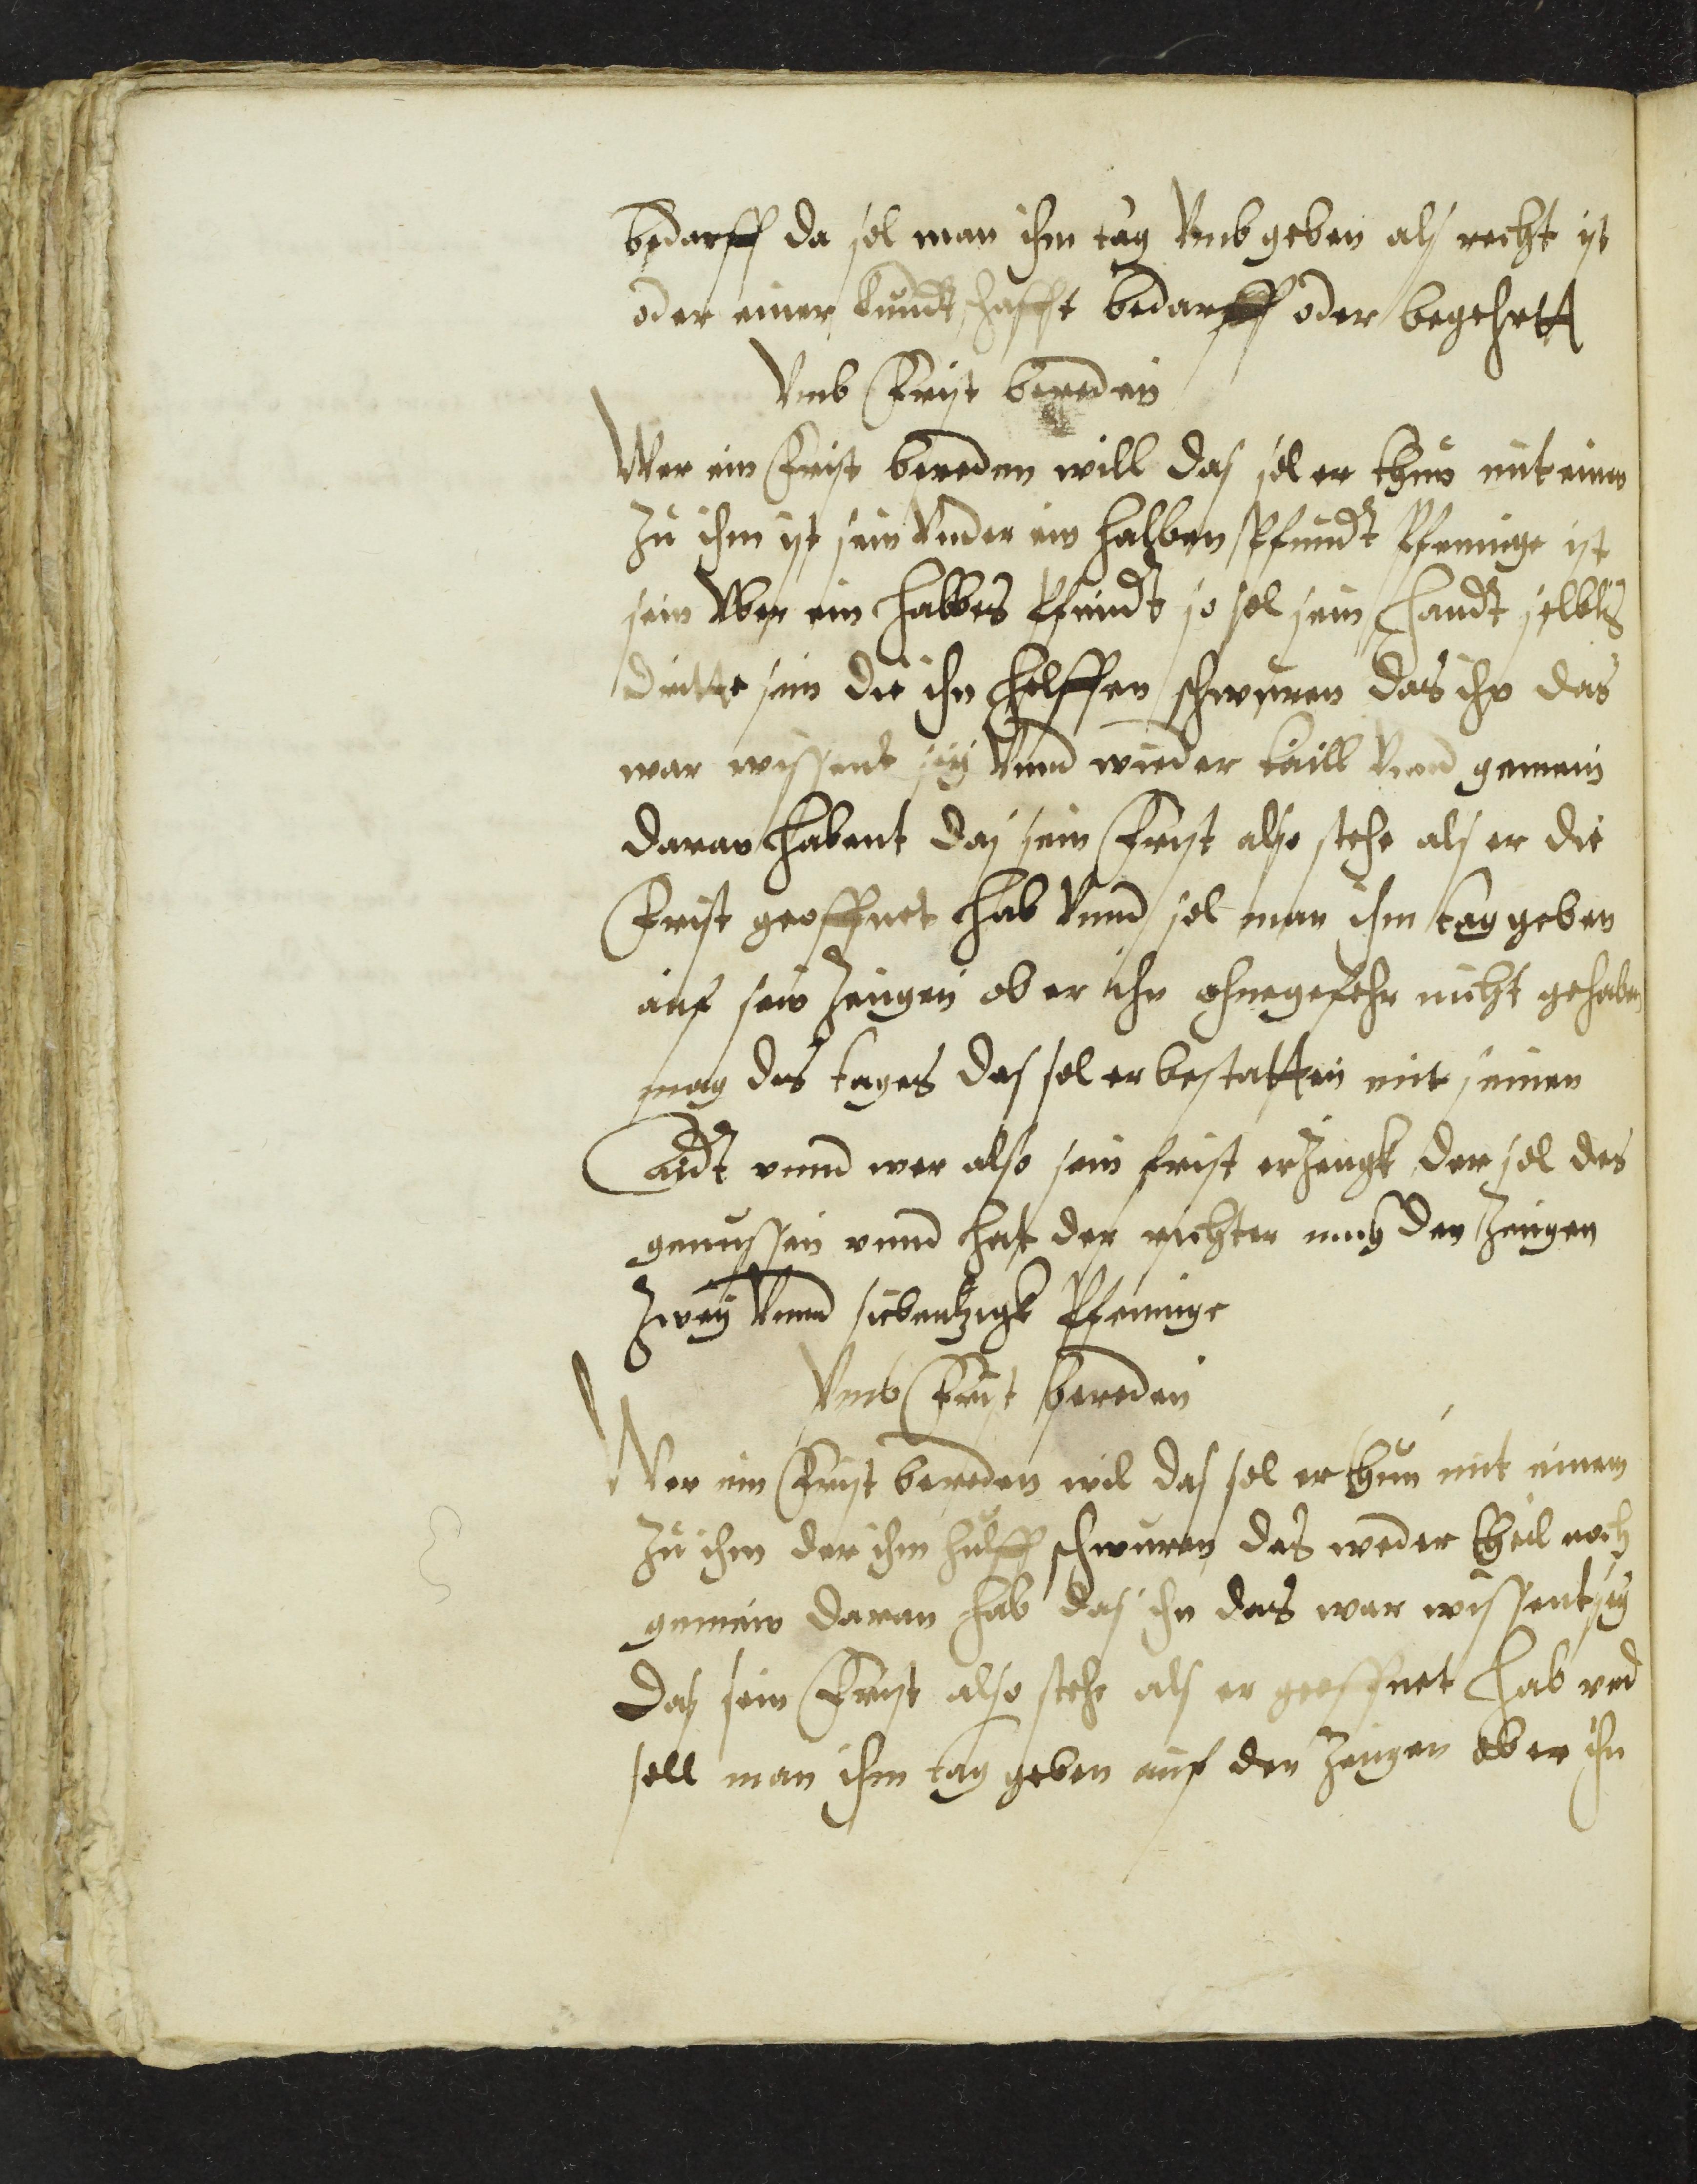 bedarff da sol man ihm tag Vmb geben als recht ist
oder einer kundtschafft bedarff oder begehrtt
Vmb Frist bereden
Wer ein Frist bereden will das sol er thun mit einem
zu ihm ist sein Vnder ein halben Pfundt Pfeninge ist
sein Vber ein halbes Pfundt so sol sein handt selbls
dritte sein die ihn helffen schweren das ihn das
war wissent sey Vnnd wieder taill Vnnd gemein
daran habent das sein Frist also stehe als er die
Frist geoffnet hab Vnnd sol man ihm tag geben
auf sein zeugen ob er ihn ohnegefehr nicht gehaben
mag des tages das sol er bestatten mit seinem
Aidt vnnd wer also sein frist erzeugk der sol des
genussen vnnd hat der richter nach den zeugen
zwey Vnnd siebentzigk Pfeninge
Vmb Frist bereden
Wer ein Frist bereden wil das sol er thun mit einem
zu ihm der ihm hulff schweren das weder theil noch
gemein daran hab das ihn das war wissent sey
Das sein Frist also stehe als er geoffnet hab vnd
soll man ihm tag geben auf den zeugen ob er ihn